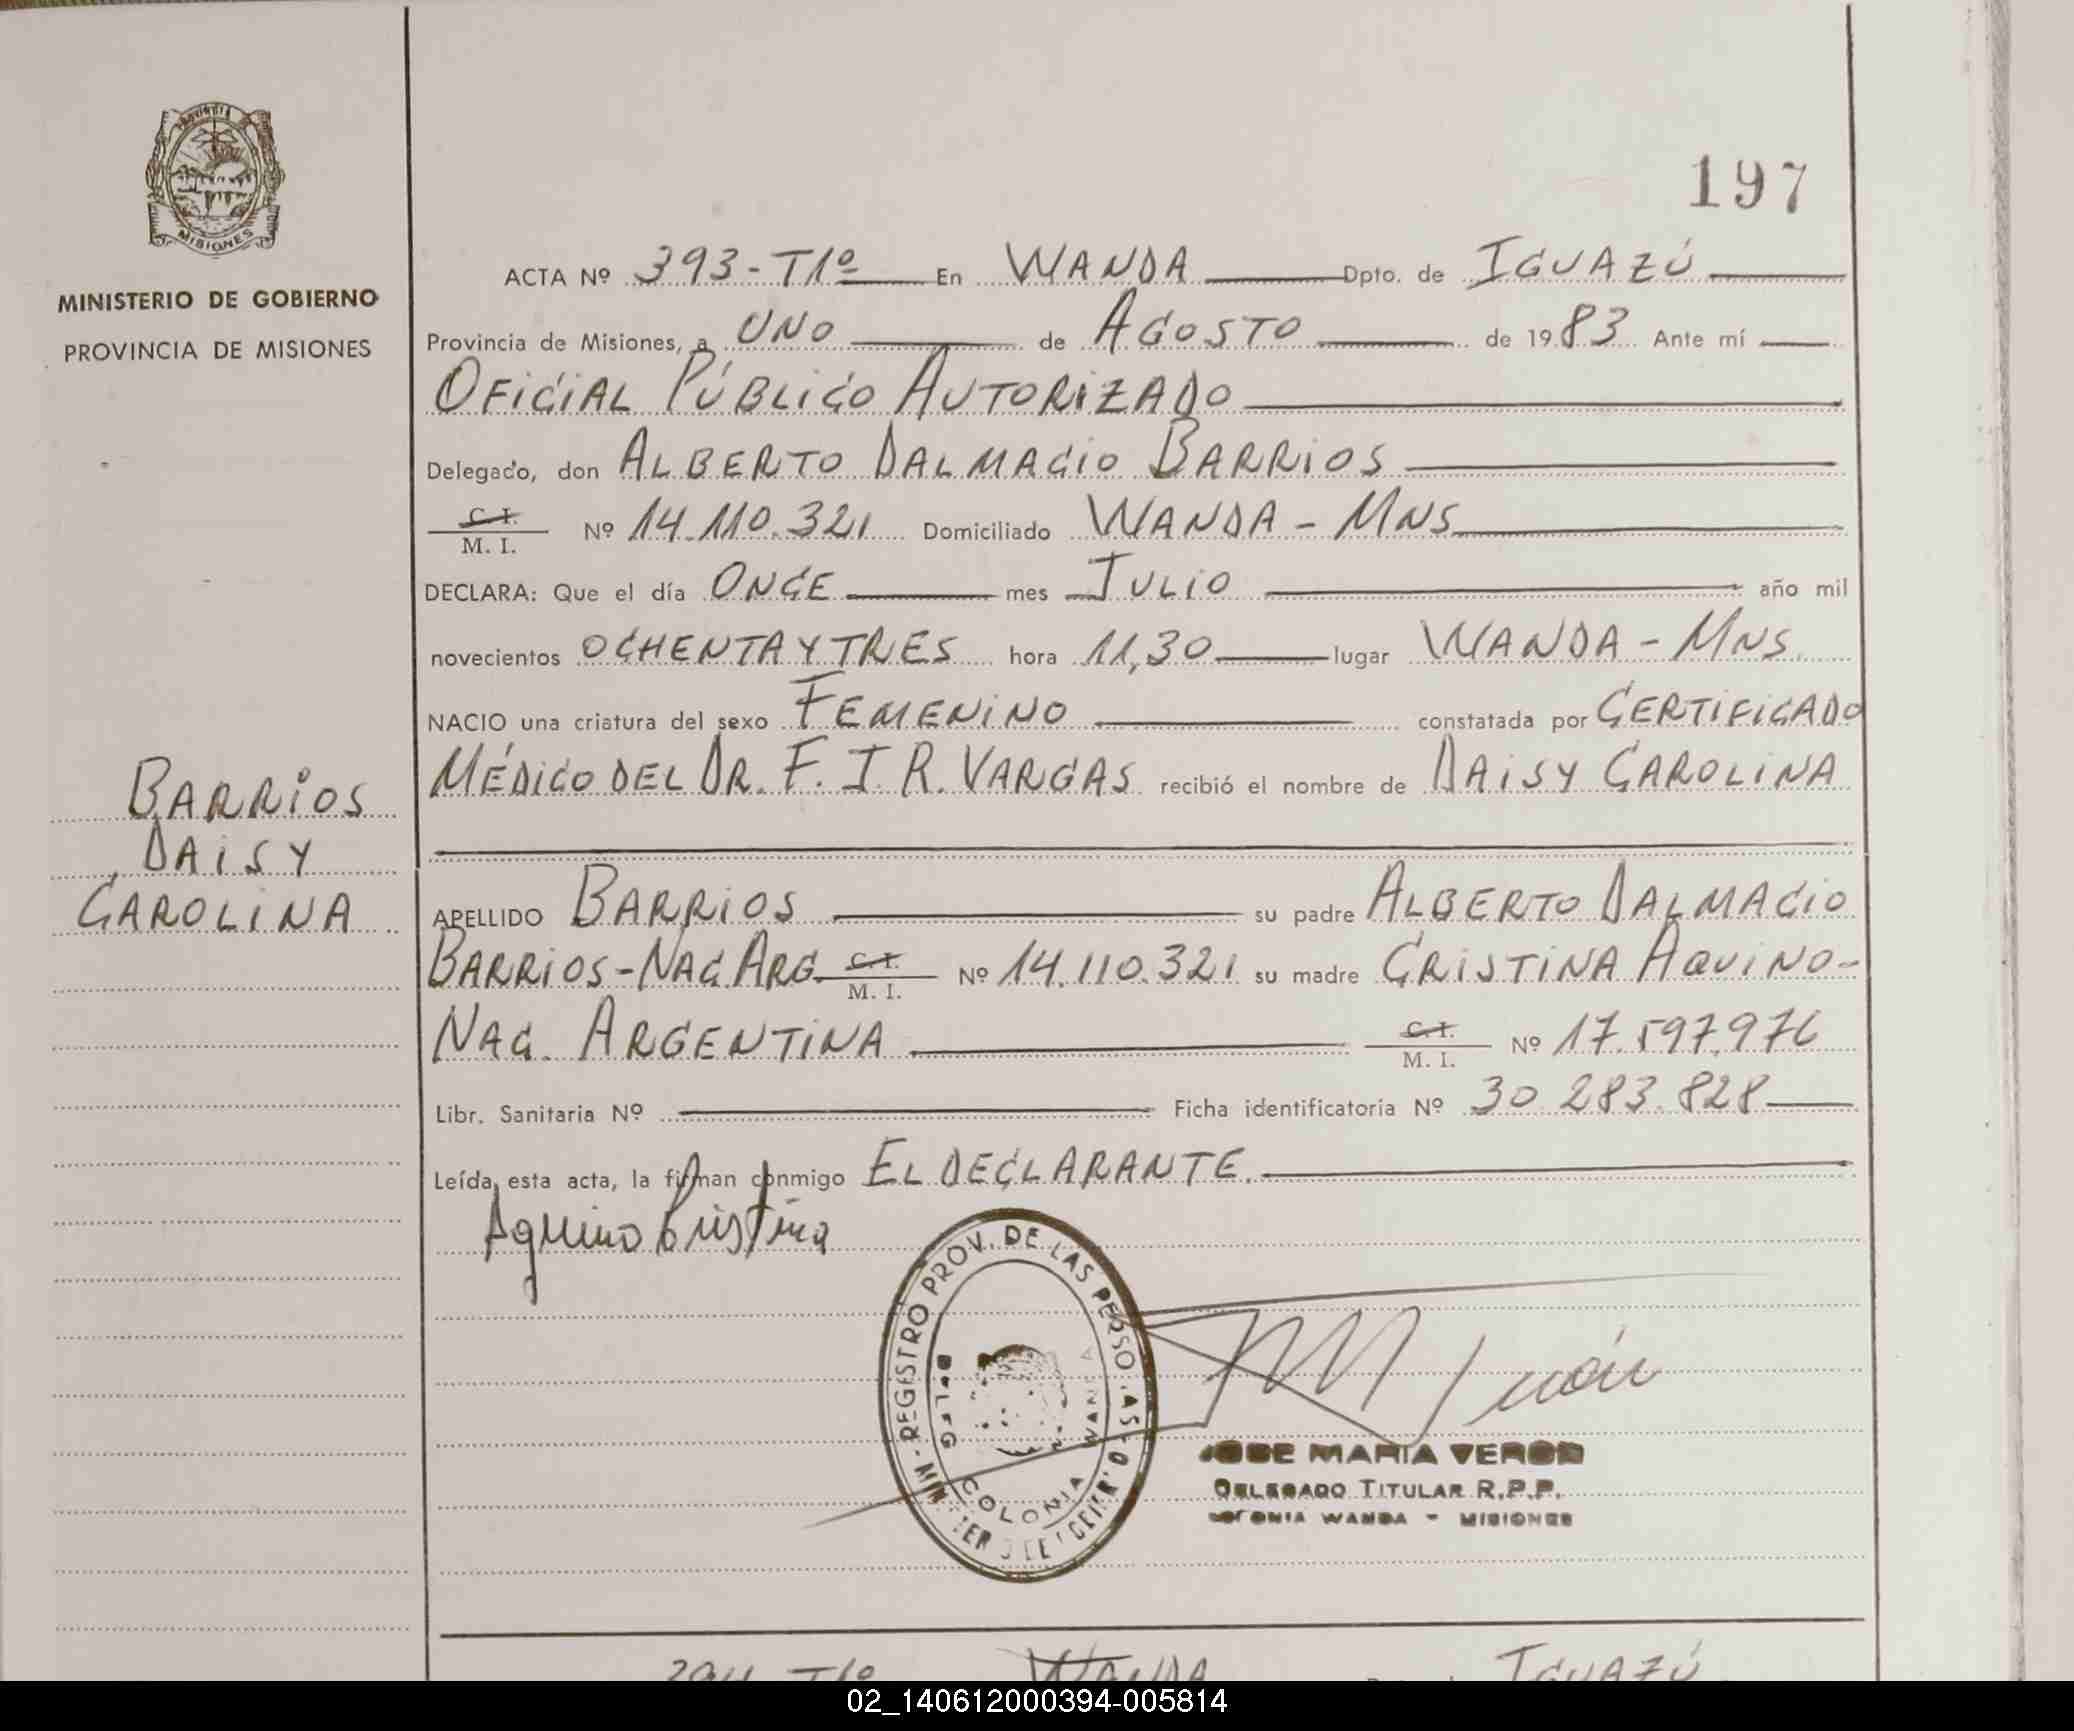 197
PROVINCIA
MISIONES
MINISTERIO DE GOBIERNO
PROVINCIA DE MISIONES
ACTA Nº 393-T1º En WANDA Dpto. de IGUAZÚ
Provincia de Misiones, a UNO de AGOSTO de 1983 Ante mí
OFICIAL PÚBLICO AUTORIZADO
Delegado, don ALBERTO DALMACIO BARRIOS
C.I. M. I. Nº 14.110.321 Domiciliado WANDA - MNS
DECLARA: Que el día ONCE mes JULIO año mil
novecientos OCHENTA Y TRES hora 11,30 lugar WANDA - MNS
NACIO una criatura del sexo FEMENINO constatada por CERTIFICADO
MÉDICO DEL DR. F. I. R. VARGAS recibió el nombre de DAISY CAROLINA
BARRIOS
DAISY
CAROLINA
APELLIDO BARRIOS su padre ALBERTO DALMACIO
BARRIOS-NAC ARG. C.I. M. I. Nº 14.110.321 su madre CRISTINA AQUINO-
NAC. ARGENTINA C.I. M. I. Nº 17.597.976
Libr. Sanitaria Nº Ficha identificatoria Nº 30 283.828
Leída esta acta, la firman conmigo EL DECLARANTE.
Aquino Cristina
REGISTRO PROV. DE LAS PERSO
COLONIA
JOSE MARIA VERON
DELEGADO TITULAR R.P.P.
COLONIA WANDA - MISIONES
WANDA IGUAZÚ
02_140612000394-005814